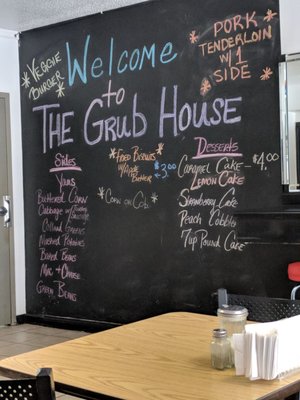 Veggie
Burger
Welcome
to
The Grub House
Pork
Tenderloin
w/ 1
Side
Sides
Yams
Buttered Corn
Cabbage w/ Turkey
Sausage
Collard Greens
Mashed Potatoes
Baked Beans
Mac + Cheese
Green Beans
Fried Biscuits
w/ Apple
Butter
$3.00
Corn on Cob
Desserts
Caramel Cake - $4.00
Lemon Cake
Strawberry Cake
Peach Cobbler
7up Pound Cake